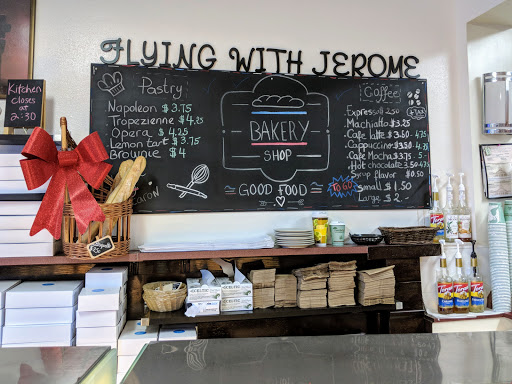 FLYING WITH JEROME
Kitchen
closes
at
2:30
Pastry
Napoleon $3.75
Tropezzienne $4.25
Opera $4.25
Lemon tart $3.75
Brownie $4
BAKERY
SHOP
GOOD FOOD
TO GO
Coffee
Expresso 2.50
Machiatto $3.25
Cafe latte $3.50 4.75
Cappuccino $3.50 4.75
Cafe Mocha $3.75 5-
Hot chocolate 3.50 4.75
Syrup flavor $0.50
Small $1.50
Large $2
Torani
Torani
Torani